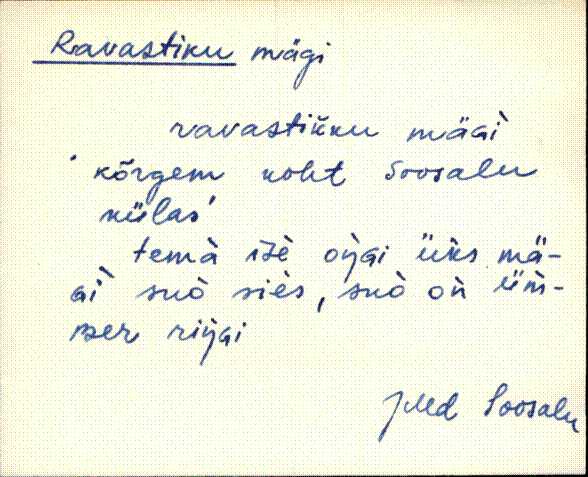 Ravastiku mägi
ravastikku mägì
'kõrgem koht Soosalu
külas'
temà izè oŋgi üks mä-
gì suò siès, suò oǹ üm̀-
ber riŋgi
JMd Soosalu